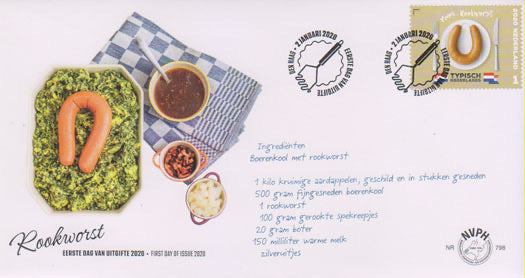 2 JANUARI 2020
DEN HAAG • EERSTE DAG VAN UITGIFTE
2 JANUARI 2020
DEN HAAG • EERSTE DAG VAN UITGIFTE
2020 NEDERLAND
1
TYPISCH
NEDERLANDS
Ingrediënten
Boerenkool met rookworst
1 kilo kruimige aardappelen, geschild en in stukken gesneden
500 gram fijngesneden boerenkool
1 rookworst
100 gram gerookte spekreepjes
20 gram boter
150 milliliter warme melk
zilveruitjes
Rookworst
EERSTE DAG VAN UITGIFTE 2020 • FIRST DAY OF ISSUE 2020
NVPH
NR
798